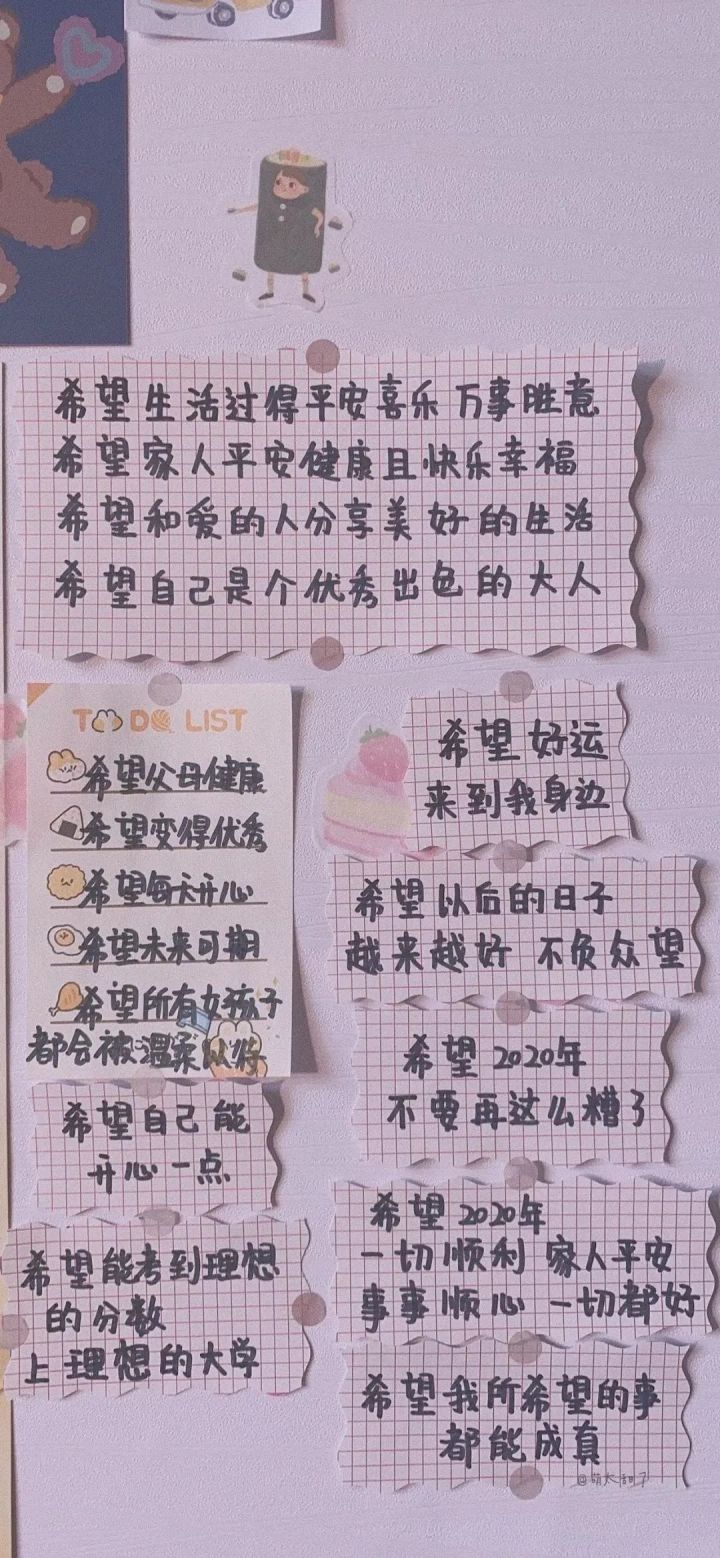 希望生活过得平安喜乐 万事胜意
希望家人平安健康且快乐幸福
希望和爱的人分享美好的生活
希望自己是个优秀出色的大人
TO DO LIST
希望父母健康
希望变得优秀
希望每天开心
希望未来可期
希望所有女孩子
都会被温柔以待
希望自己能
开心一点
希望能考到理想
的分数
上理想的大学
希望好运
来到我身边
希望以后的日子
越来越好 不负众望
希望2020年
不要再这么糟了
希望2020年
一切顺利 家人平安
事事顺心 一切都好
希望我所希望的事
都能成真